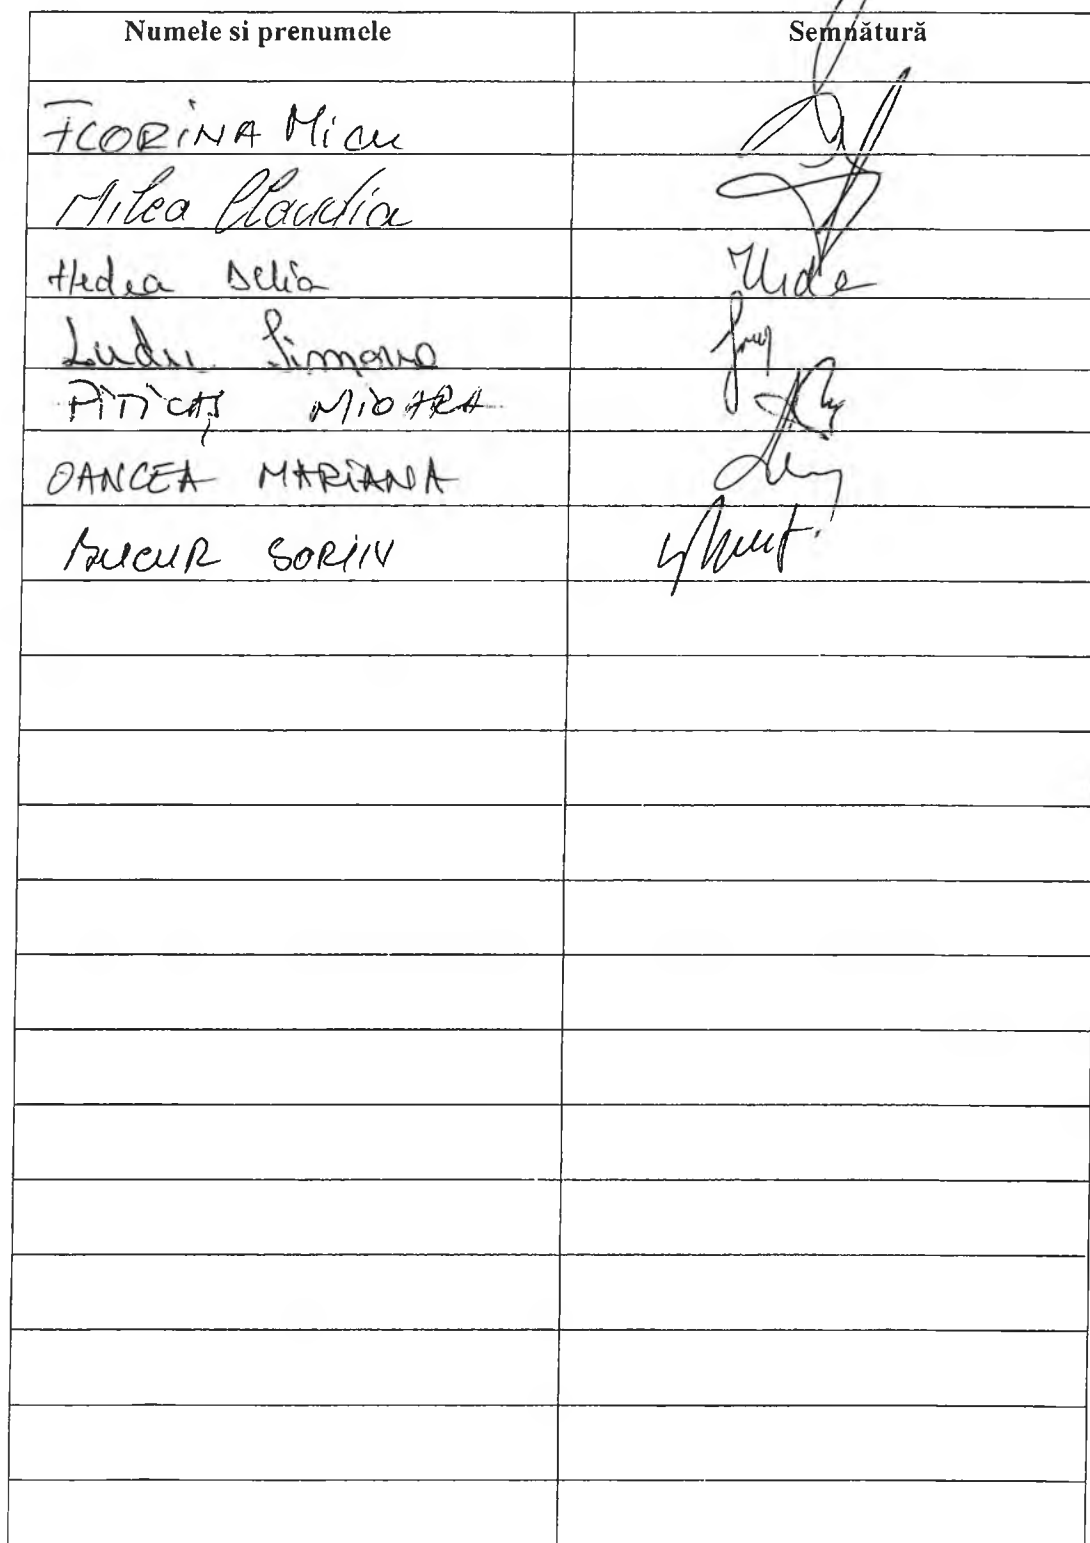 Numele si prenumele Semnătură
FLORINA Micu
Milea Claudia
Hedea Delia
Ludu Simona
PITICAȘ MIOARA
OANCEA MARIANA
BUCUR SORIN